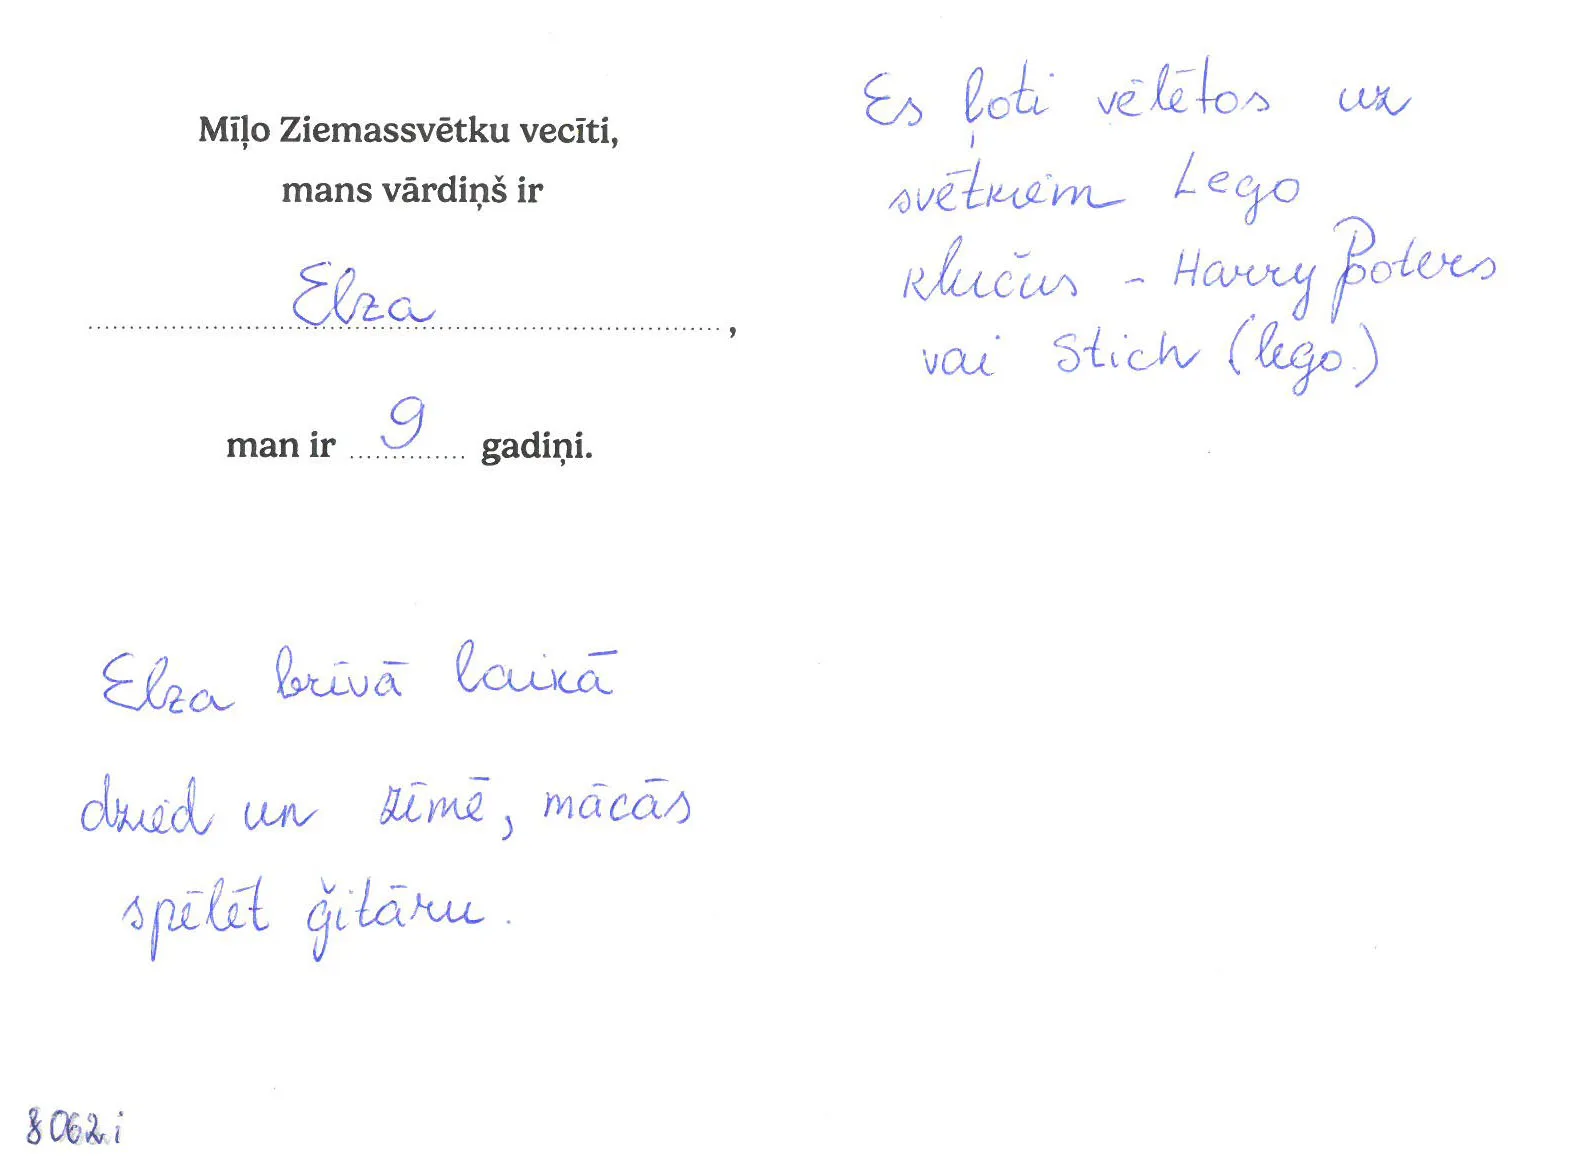 Mīļo Ziemassvētku vecīti,
mans vārdiņš ir
Elza,
man ir 9 gadiņi.
Elza brīvā laikā
dzied un zīmē, mācās
spēlēt ģitāru.
Es ļoti vēlētos uz
svētkiem Lego
klučus - Harry Poters
vai Stich (lego.)
8062.i